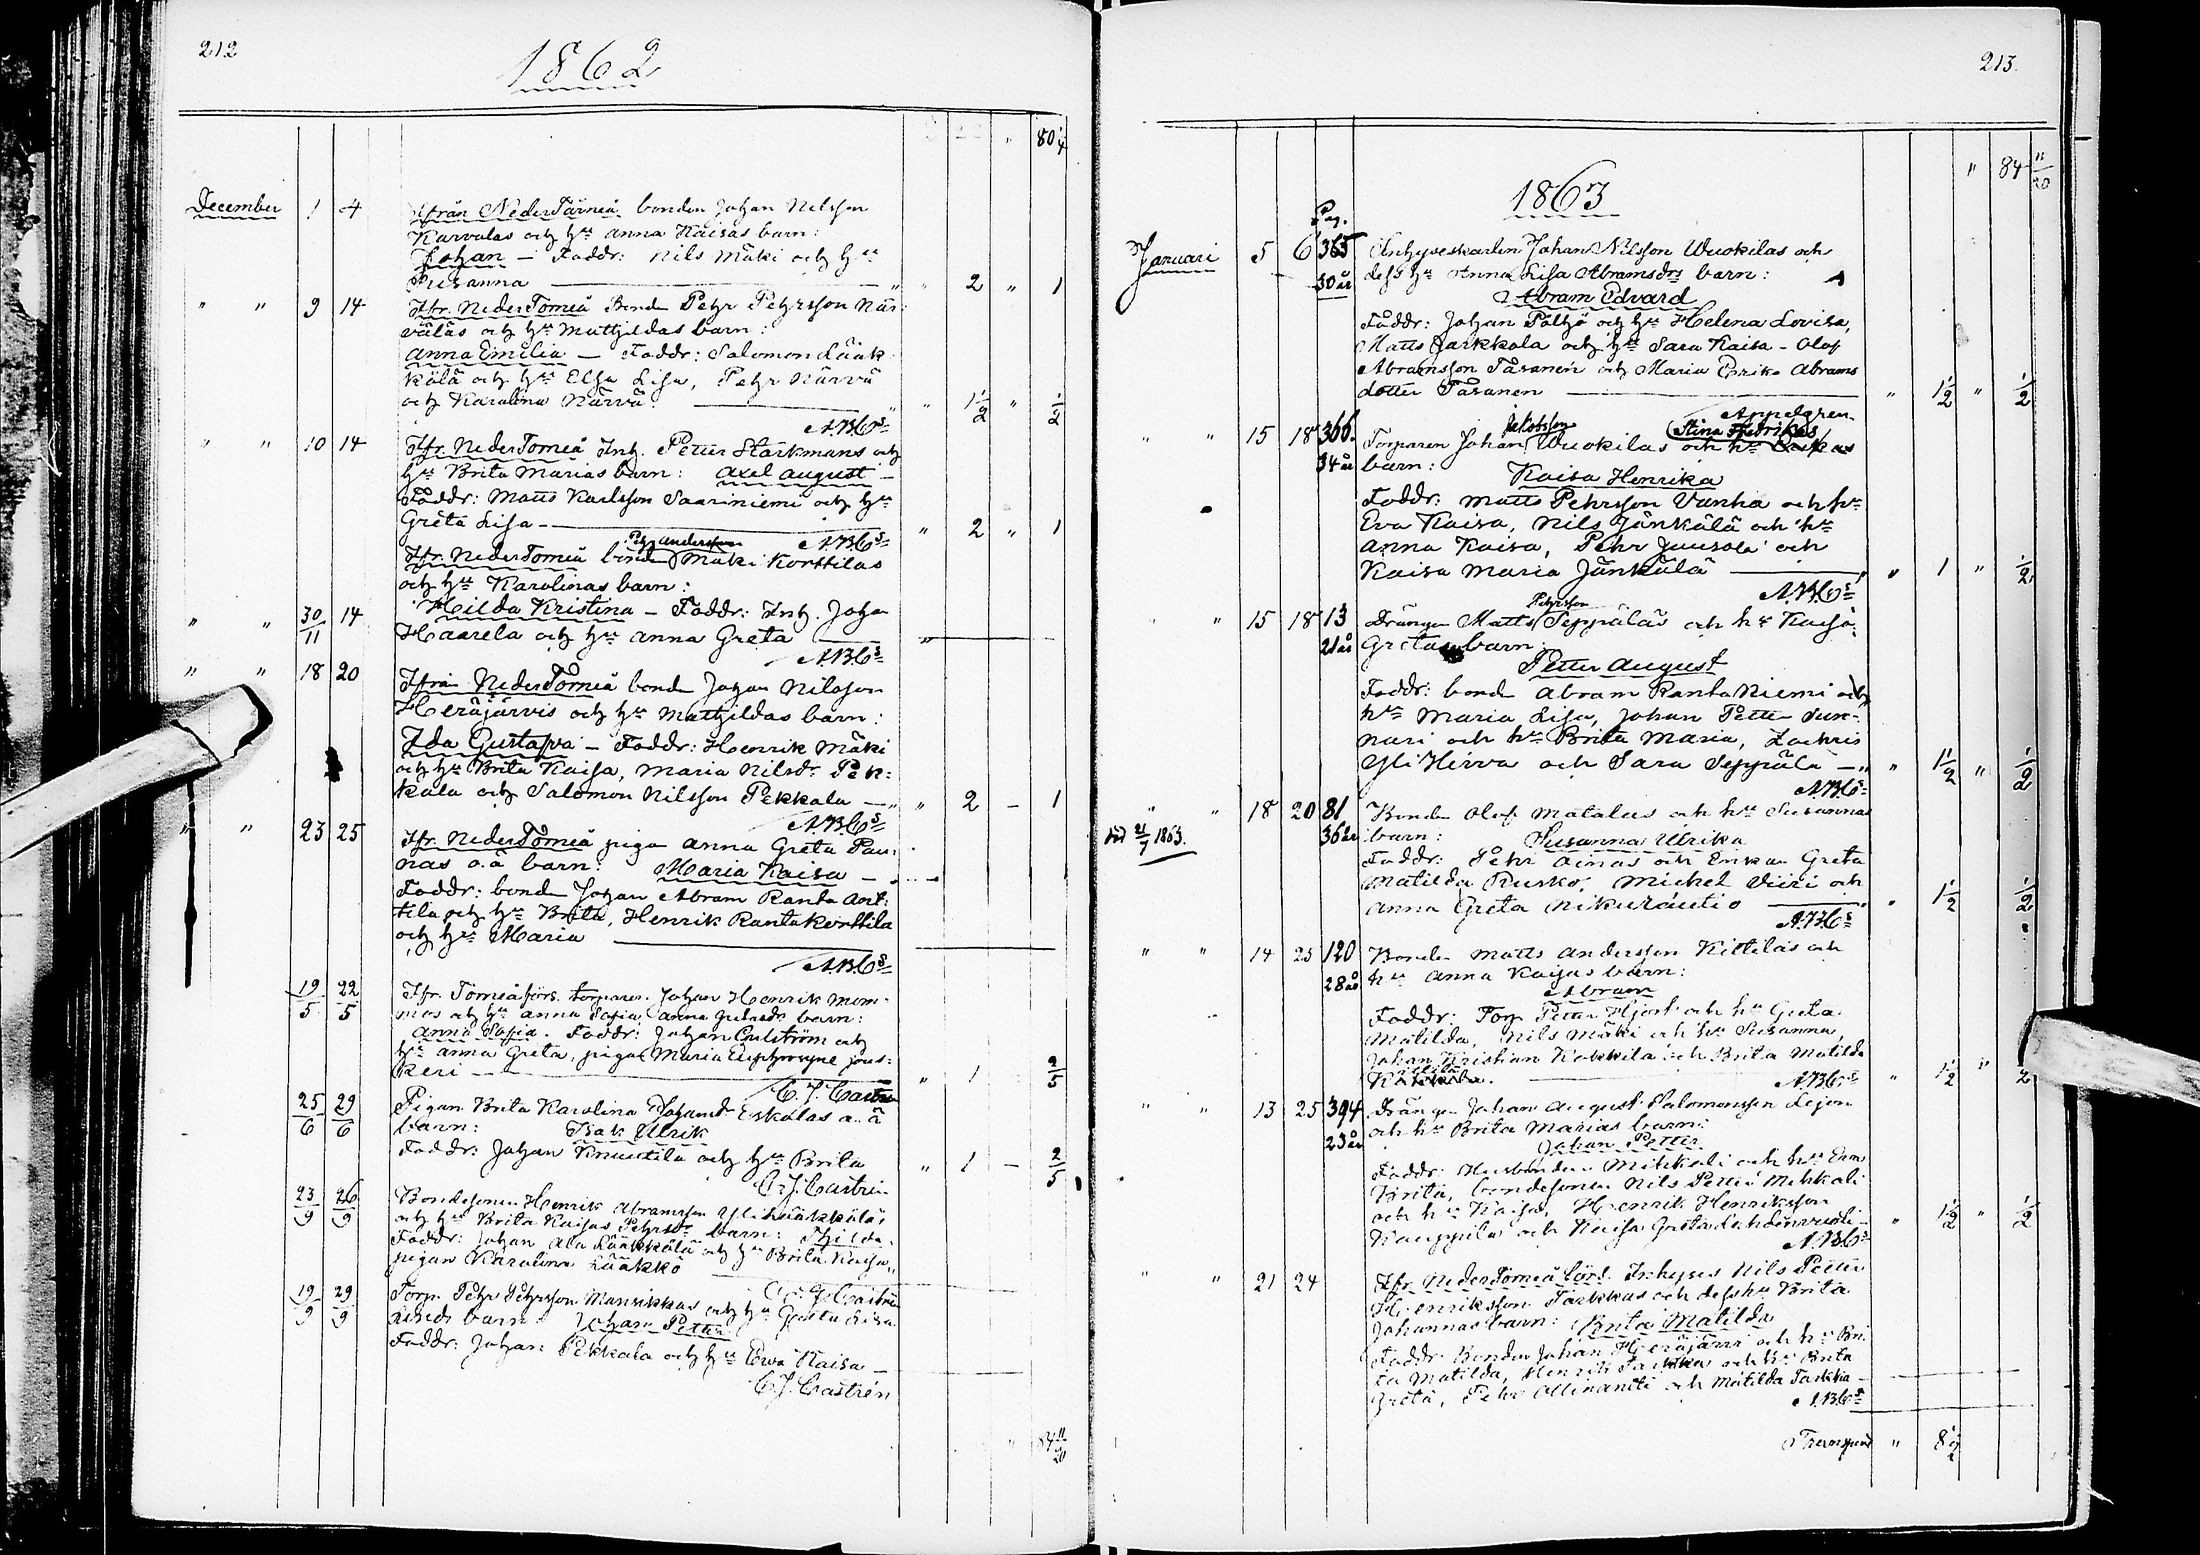 212
1862
80 1/4
December 1 4 Ifrån NederTårneå bonden Johan Nilsson
Karvalas och hu Anna Kaisas barn:
Johan – Faddr: Nils Mäki och hu
Susanna — " " 2 " 1
" " 9 14 Ifr. NederTorneå Bonden Pehr Pehrsson När:
väläs och hu Mathildas barn:
Anna Emilia – Faddr: Salomon Lääk
kölä och hu Elsa Lisa, Pehr Närvä
och Karolina Närvä. — " " 1 1/2 " 1/2
" " 10 14 Ifr. NederTorneå Inh. Petter Starkmans och
hu Brita Marias barn: Axel August –
Faddr: Matts Karlsson Saariniemi och hu
Greta Lisa – " 2 " 1
Pehr Andersson
Ifr. NederTorneå bonden Mäki Korttilas
och hu Karolinas barn:
" " 30/11 14 Hilda Kristina – Faddr: Inh. Johan
Haarela och hu Anna Greta — "
" " 18 20 Ifrån NederTorneå bonden Johan Nilsson
Heräjärvis och hu Mathildas barn:
Ida Gustafva – Faddr: Henrik Mäki
och hu Brita Kaisa, Maria Nilsdr Pek:
kala och Salomon Nilsson Pekkala — " " 2 – 1
" " 23 25 Ifr. NederTorneå pigan Anna Greta Pau:
nas o.ä barn: Maria Kaisa –
Faddr: bonden Johan Abram Ranta Ant:
tila och hu Brita, Henrik Rantakorttila
och hu Maria —
19/5 22/5 Ifr. Torneå förs. torparen Johan Henrik Mom:
mos och hu Anna Sofia barn:
Anna Sofia. Faddr: Johan och
hu Anna Greta, pigan Maria Euphrosyne Jous:
keri — " 1 2/5
C. J. Castrén
25/6 29/6 Pigan Brita Karolina Johansdr Eskolas o. ä
barn: Isak Ulrik
Faddr: Johan Knuutila och hu Brita " 1 – 2/5
C. J. Castrén
23/9 26/9 Bondesonen Henrik Abramsson
och hu Brita Kaisas Pehrsdr barn:
Faddr: Johan Ala Lääkkölä och hu Brita Kaisa,
pigan Karolina Lääkkö
C. J. Castrén
19/9 29/9 Torp. Pehr Pehrsson Mansikkas och hu Greta Lisa
Nilsdrs barn: Johan Petter
Faddr: Johan Pekkala och hu Ewa Kaisa –
C. J. Castrén
" 84 11/20
213.
" 84 11/20
1863
Pag.
Januari 5 6 365 Inhyseskarlen Johan Nilsson Wuokilas och
30 år dess hu Anna Lisa Abramsdrs barn:
Abram Edvard
Faddr: Johan Poltjö och hu Helena Lovisa,
Matts Jarkkola och hu Sara Kaisa – Olof
Abramsson Tåranen och Maria Erika Abrams
dotter Tåranen — " 1 1/2 " 1/2
Appelgren
Jakobsson Stina Fredrikas
" " 15 18 366. Torparen Johan Wuokilas och hu
34 år barn:
Kaisa Henrika
Faddr: Matts Pehrsson Vanha och hu
Eva Kaisa, Nils Jänkälä och hu
Anna Kaisa, Pehr Juusola och
Kaisa Maria Jänkälä — " 1 " 1/2
Pehrsson
" " 15 18 13 Drängen Matts Seppäläs och hu Kaisa
21 år Gretas barn
Petter August
Faddr: bonden Abram RantaNiemi och
hu Maria Lisa, Johan Petter Sun:
nari och hu Brita Maria, Zachris
YliHirva och Sara Seppälä — " " 1 1/2 " 1/2
" " 18 20 81 Bonden Olof Matalas och hu Susannas
död 21/7 1863. 36 år barn: Susanna Ulrika
Faddr: Pehr Ainas och Enkan Greta
Matilda Rusko, Michel Viiri och
Anna Greta Nikurautio — " 1 1/2 1/2
" " 14 25 120 Bonden Matts Andersson Kittiläs och
28 år hu Anna Kajsas barn:
Abram
Faddr: Torp. Petter Hjort och hu Greta
Matilda, Nils Mäki och hu Susanna,
Johan Kristian Kokkila och Brita Matilda
" 1 1/2 " 1/2
" " 13 25 394 Drängen Johan August Salomonsson Lejon
23 år och hu Brita Marias barn:
Johan Petter
Faddr: Husbonden Mihkali och hu Eva
Brita, bondesonen Nils Petter Mihkali
och hu Kaisa, Henrik Henriksson
Kauppila och Kaisa Greta " 1 1/2 " 1/2
" " 21 24 Ifr. NederTorneå förs. Inhyses Nils Petter
Henriksson Tarkkas och dess hu Brita
Johannas barn: Brita Matilda
Faddr: Bonden Johan Heräjärvi och hu Bri
ta Matilda, Henrik Tarkka och hu Brita
Greta, Pehr Alinanti och Matilda Tarkka –
Transport " 8 1/2